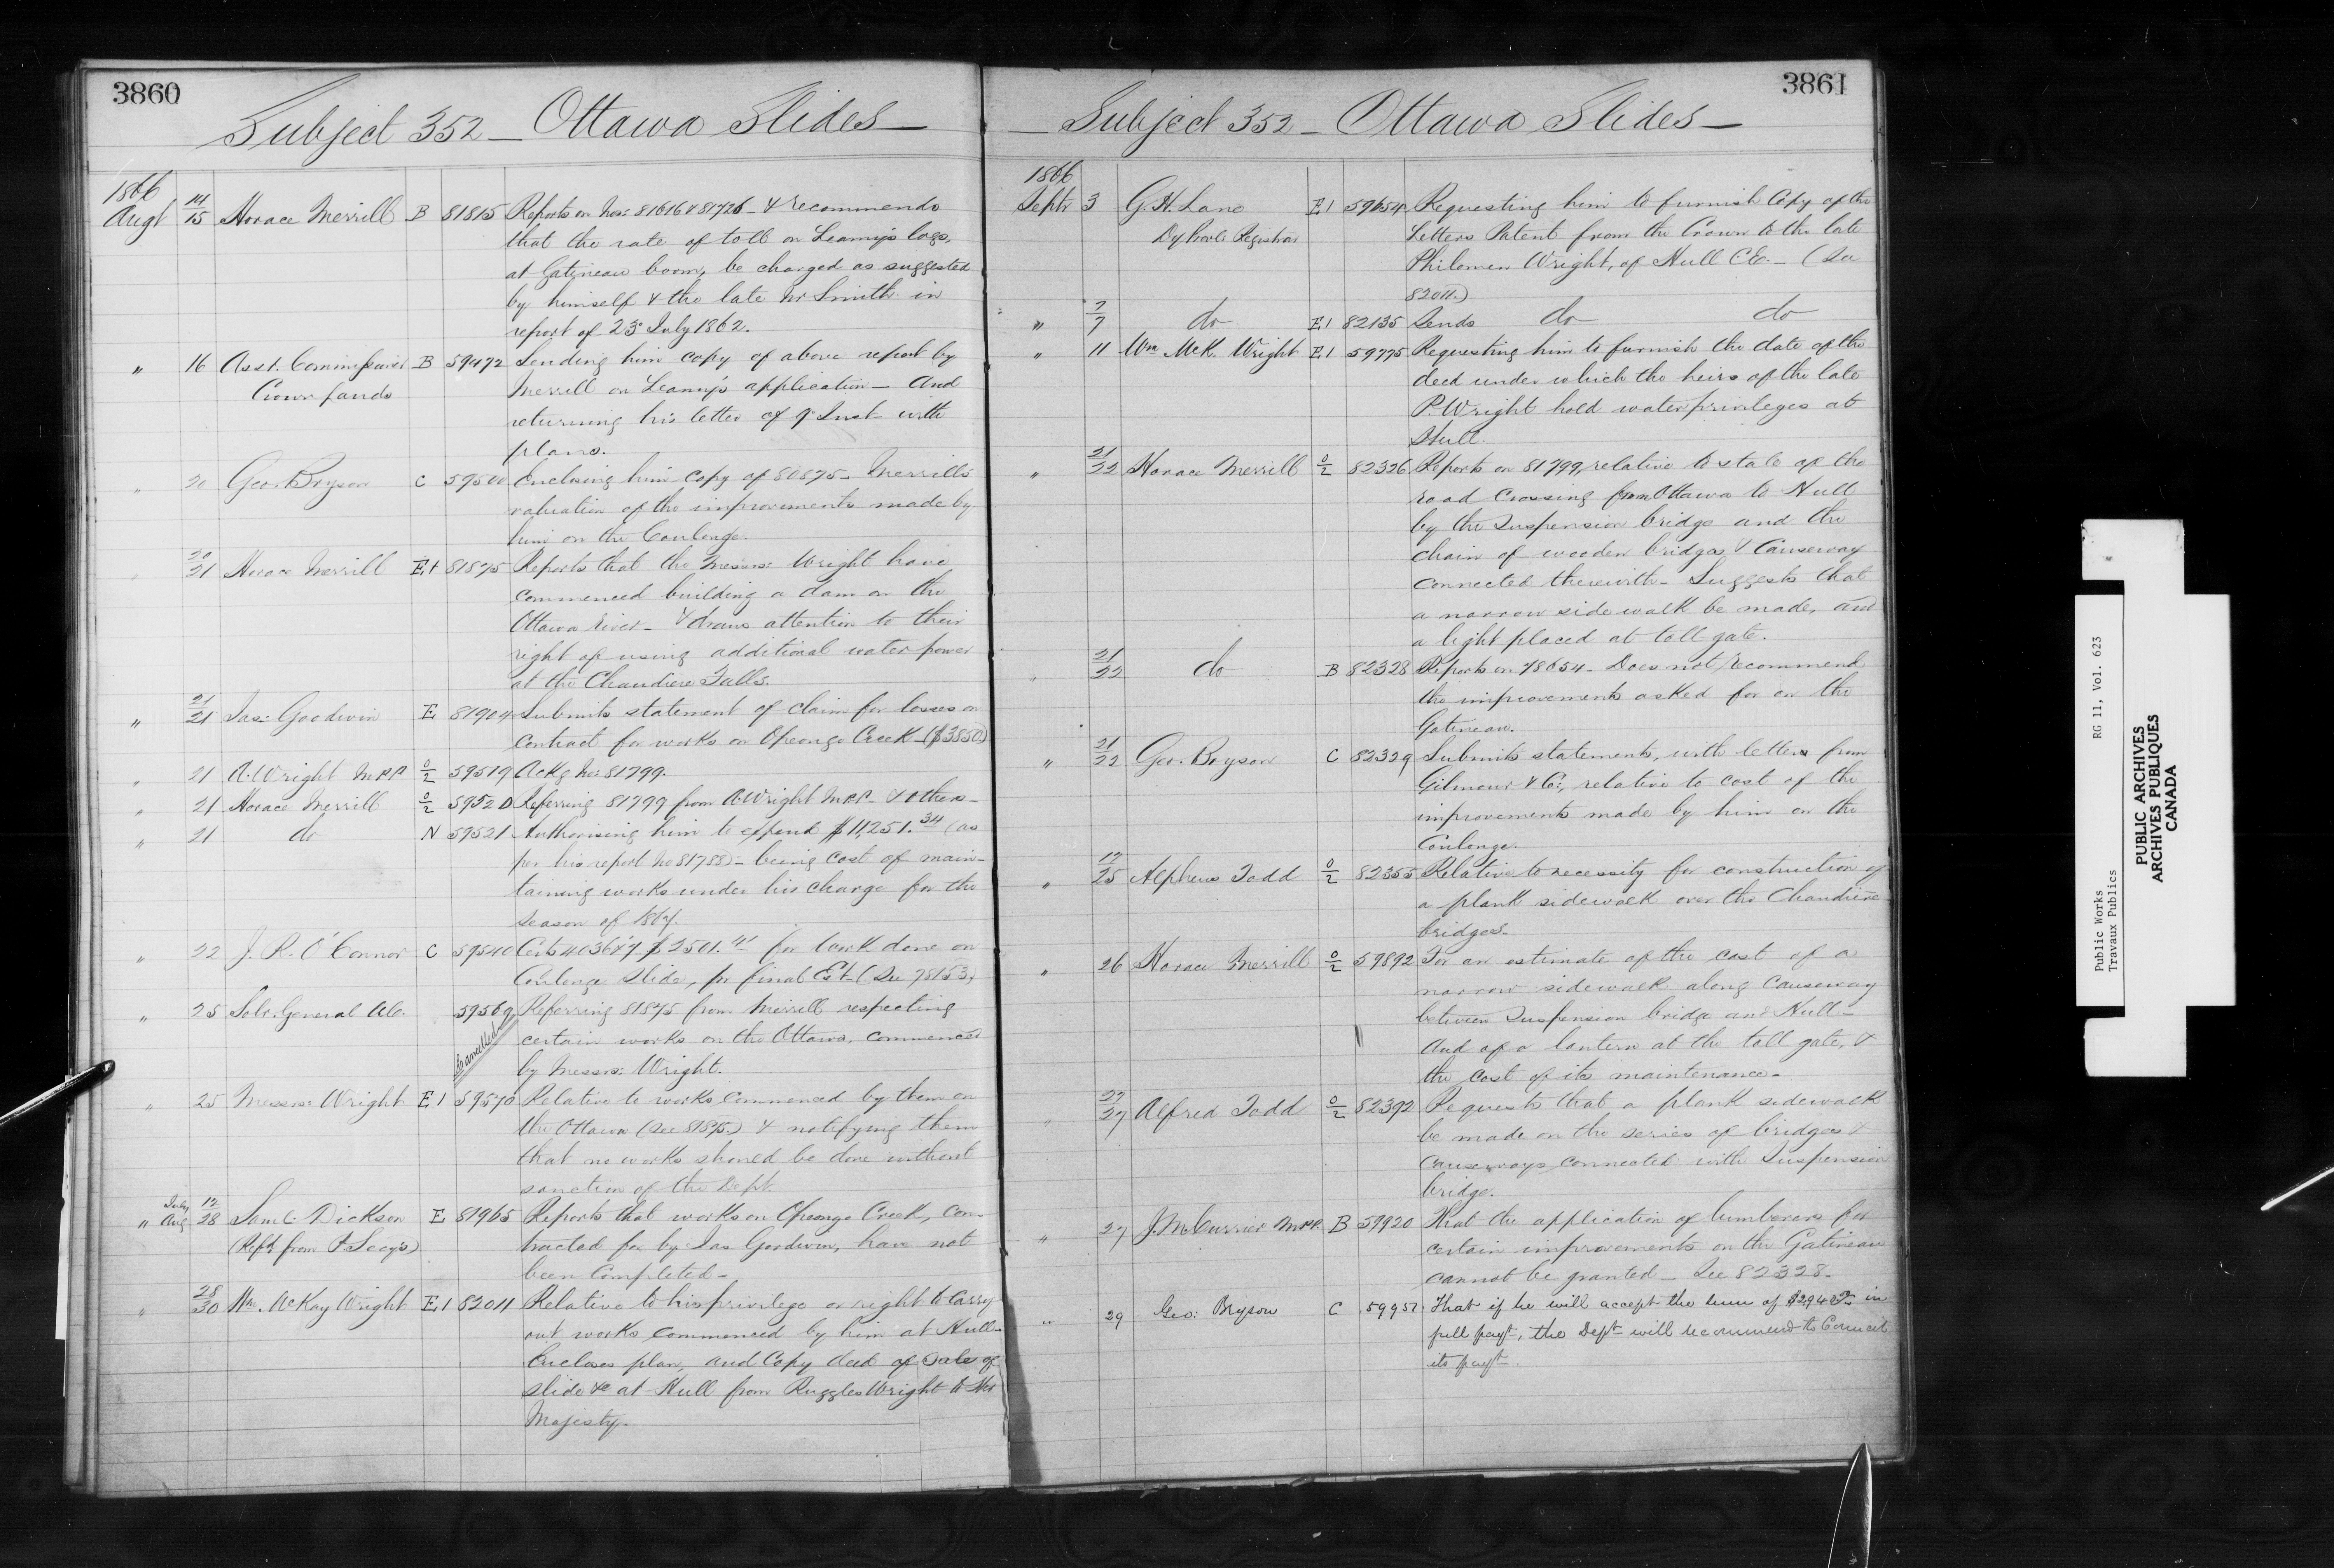 3860
Subject 352 — Ottawa Slides —
1866
Augt 14/15 Horace Merrill B 81815 Reports on Nos: 81616 & 81726 — & recommends
that the rate of toll on Leamy's logs,
at Gatineau boom, be charged as suggested
by himself & the late Mr Smith in
report of 23d July 1862.
" 16 Asst. Commissioner B 59472 Sending him copy of above report by
Crown Lands Merrill on Leamy's application — and
returning his letter of 9th Inst with
plans.
" 20 Geo. Bryson C 59500 Enclosing him copy of 80875 — Merrill's
valuation of the improvements made by
him on the Coulonge.
" 20/21 Horace Merrill E1 81875 Reports that the Messrs: Wright have
commenced building a dam on the
Ottawa River — & draws attention to their
right of using additional water power
at the Chaudiere Falls.
" 21/21 Jas: Goodwin E 81904 Submits statement of claim for losses on
contract for works on Opeongo Creek — ($3850)
" 21 A. Wright M.P.P. 0/2 59519 Ackg No: 81799.
" 21 Horace Merrill 0/2 59520 Referring 81799 from A. Wright M.P.P. — & others —
" 21 do N 59521 Authorising him to expend $11,251.34 (as
per his report No 81788) — being cost of main-
taining works under his charge for the
season of 1867.
" 22 J. R. O'Connor C 59540 Certs 4036 & 7 $2501.41 for work done on
Coulonge Slide, pr final Est. (See 78153,
" 25 Solr. General 59569 Referring 81875 from Merrill respecting
Cancelled certain works on the Ottawa, commenced
by Messrs: Wright.
" 25 Messrs: Wright E1 59570 Relative to works commenced by them on
the Ottawa (See 81875.) & notifying them
that no works should be done without
sanction of the Dept.
" July 12 / Aug 28 Saml: Dickson E 81965 Reports that works on Opeongo Creek, con-
(Refd from P. Secy's) tracted for by Jas Goodwin, have not
been completed —
" 28/30 Wm. McKay Wright E1 82011 Relative to his privilege or right to carry
out works commenced by him at Hull —
Encloses plan, and Copy deed of Sale of
slide &c at Hull from Ruggles Wright to Her
Majesty.
3861
— Subject 352 — Ottawa Slides —
1866
Septr 3 G. H. Lane E1 59654 Requesting him to furnish Copy of the
Dy Provl: Registrar Letters Patent from the Crown to the late
Philemon Wright, of Hull C.E. — (See
82011.)
" 7/7 do E1 82135 Sends do do
" 11 Wm McK. Wright E1 59775 Requesting him to furnish the date of the
deed under which the heirs of the late
P. Wright hold water privileges at
Hull.
" 21/22 Horace Merrill 0/2 82326 Reports on 81799, relative to state of the
road crossing from Ottawa to Hull
by the Suspension bridge and the
chain of wooden bridges & Causeway
connected therewith — Suggests that
a narrow side walk be made, and
a light placed at toll gate.
" 21/22 do B 82328 Reports on 78054 — Does not recommend
the improvements asked for on the
Gatineau.
" 21/22 Geo. Bryson C 82329 Submits statements, with letters from
Gilmour & Co:, relative to cost of the
improvements made by him on the
Coulonge.
" 12/25 Alpheus Todd 0/2 82355 Relative to necessity for construction of
a plank sidewalk over the Chaudière
bridges.
" 26 Horace Merrill 0/2 59892 For an estimate of the cost of a
narrow sidewalk along Causeway
between Suspension bridge and Hull —
And of a lantern at the toll gate, &
the cost of its maintenance —
" 27/27 Alfred Todd 0/2 82392 Requests that a plank sidewalk
be made on the series of bridges &
causeways connected with Suspension
bridge.
" 27 J. M. Currier M.P.P. B 59920 That the application of lumberers for
certain improvements on the Gatineau
cannot be granted — See 82328.
" 29 Geo: Bryson C 59957 That if he will accept the sum of in
full payt, the Dept will recommend to Council
its payt.
Public Works
Travaux Publics
RG 11, Vol. 623
PUBLIC ARCHIVES
ARCHIVES PUBLIQUES
CANADA